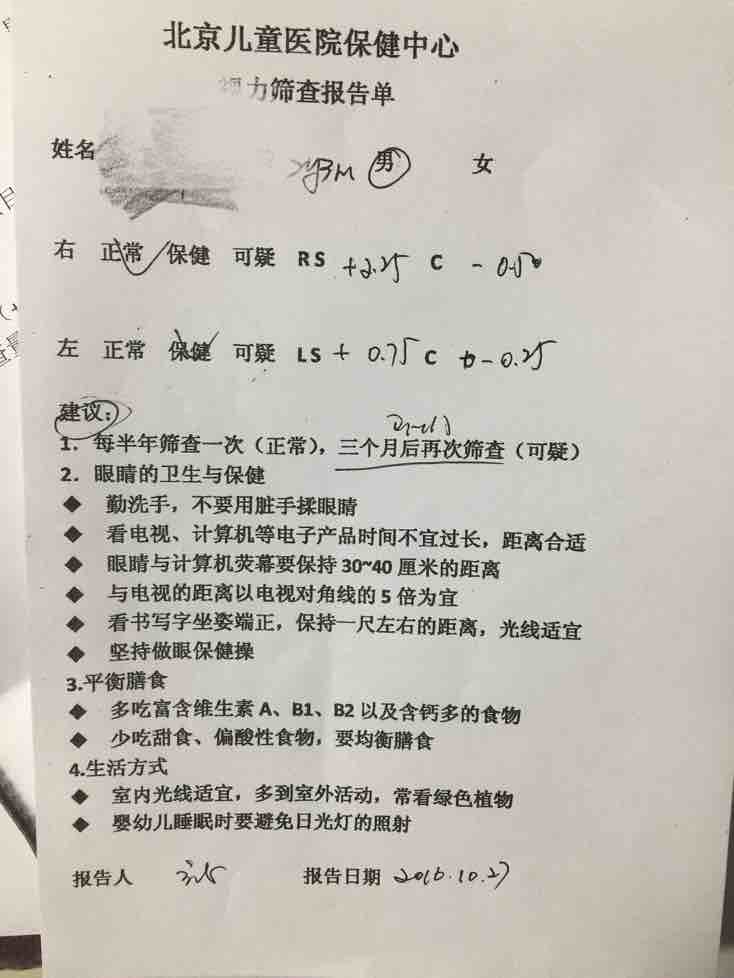 北京儿童医院保健中心
视力筛查报告单
姓名 男 女
右 正常 保健 可疑 RS +2.25 C -0.50
左 正常 保健 可疑 LS + 0.75 C -0.25
建议：
1. 每半年筛查一次（正常），三个月后再次筛查（可疑）
2. 眼睛的卫生与保健
◆ 勤洗手，不要用脏手揉眼睛
◆ 看电视、计算机等电子产品时间不宜过长，距离合适
◆ 眼睛与计算机荧幕要保持 30~40 厘米的距离
◆ 与电视的距离以电视对角线的 5 倍为宜
◆ 看书写字坐姿端正，保持一尺左右的距离，光线适宜
◆ 坚持做眼保健操
3.平衡膳食
◆ 多吃富含维生素 A、B1、B2 以及含钙多的食物
◆ 少吃甜食、偏酸性食物，要均衡膳食
4.生活方式
◆ 室内光线适宜，多到室外活动，常看绿色植物
◆ 婴幼儿睡眠时要避免日光灯的照射
报告人 报告日期 2016.10.27